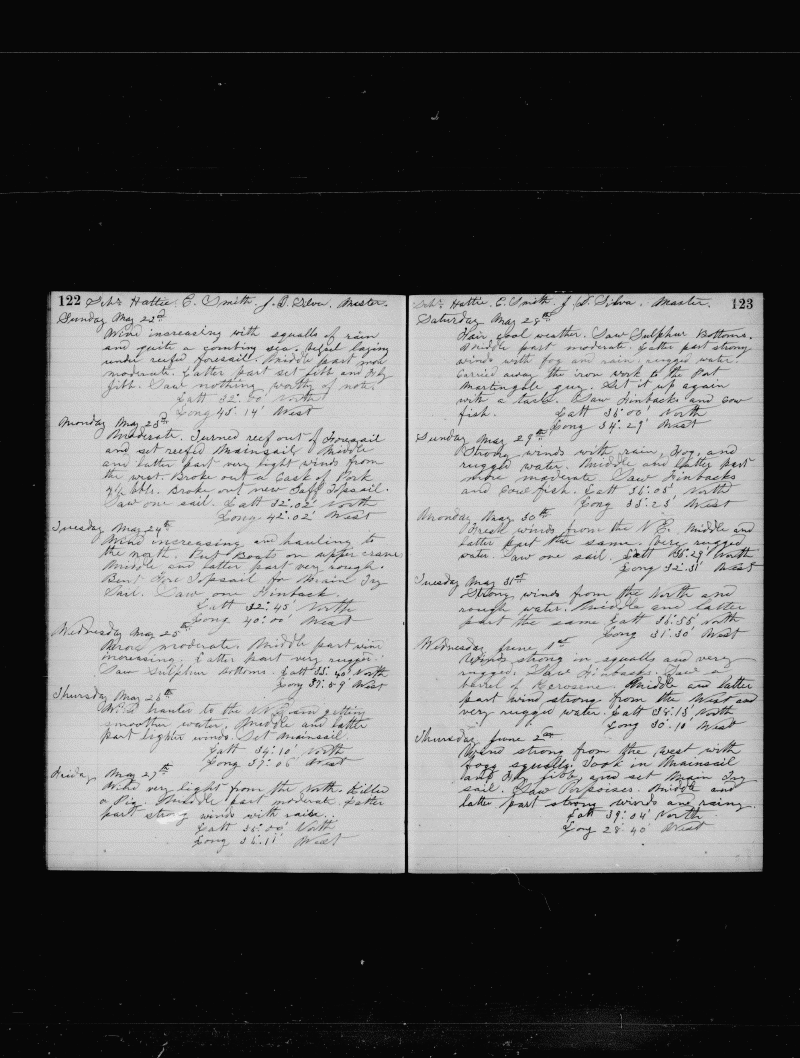 122 Schr Hattie E. Smith. J. D. Silva. Master.
Sunday May 22d
Wind increasing with squalls of rain
and quite a combing sea. Vessel laying
under reefed foresail. Middle part more
moderate. Latter part set jibb and Fly
jibb. Saw nothing worthy of note.
Latt 32° 00' North
Long 43° 14' West
Monday May 23d
Moderate. Turned reef out of Foresail
and set reefed Mainsail. Middle
and latter part very light winds from
the west. Broke out a Cask of Pork
bbls. Broke out new Gaff Topsail.
Saw one sail. Latt 32° 02' North
Long. 42° 02' West
Tuesday May 24th
Wind increasing and hauling to
the north. Put Boats on upper cranes
Middle and latter part very rough.
Bent Fore Topsail for Main Try
Sail. Saw one Finback.
Latt 32° 45' North
Long 40° 00' West
Wednesday May 25th
More moderate. Middle part wind
increasing. Latter part very rugged.
Saw Sulphur Bottoms. Latt 33° 40' North
Long 37° 59' West
Thursday May 26th
Wind hauler to the N.E. and getting
smoother water. Middle and latter
part lighter winds. Set Mainsail
Latt 34° 10' North
Long 37° 06' West
Friday May 27th
Wind very light from the North. Killed
a Pig. Middle part moderate. Latter
part strong winds with rain.
Latt 35° 00' North
Long 36° 11' West
Schr Hattie E. Smith J. D. Silva. Master. 123
Saturday May 28th
Fair, cool weather. Saw Sulphur Bottoms.
Middle part moderate. Latter part strong
winds with fog and rain, rugged water.
Carried away the iron work to the Port
Martingale guy. Set it up again
with a tackle. Saw Finbacks and Cow
fish. Latt 36° 00' North
Long 34° 29' West
Sunday May 29th
Strong winds with rain, Fog, and
rugged water. Middle and latter part
more moderate. Saw Finbacks
and Cow fish. Latt 36° 05' North
Long 33° 23' West
Monday May 30th
Fresh winds from the N.E. Middle and
latter part the same. Very rugged
water. Saw one sail. Latt 36° 29' North
Long 32° 31' West
Tuesday May 31st
Strong winds from the North and
rough water. Middle and latter
part the same Latt 36° 55' North
Long 31° 30' West
Wednesday June 1st
Winds strong in squalls and very
rugged. Saw Finbacks. Saw a
barrel of Kerosene. Middle and latter
part wind strong from the West and
very rugged water. Latt 38° 13' North
Long 30° 10' West
Thursday June 2nd
Wind strong from the West with
foggy squalls. Took in Mainsail
and Fly jibb, and set Main Try
sail. Saw Porpoises. Middle and
latter part strong winds and rainy.
Latt 39° 04' North
Long 28° 40' West